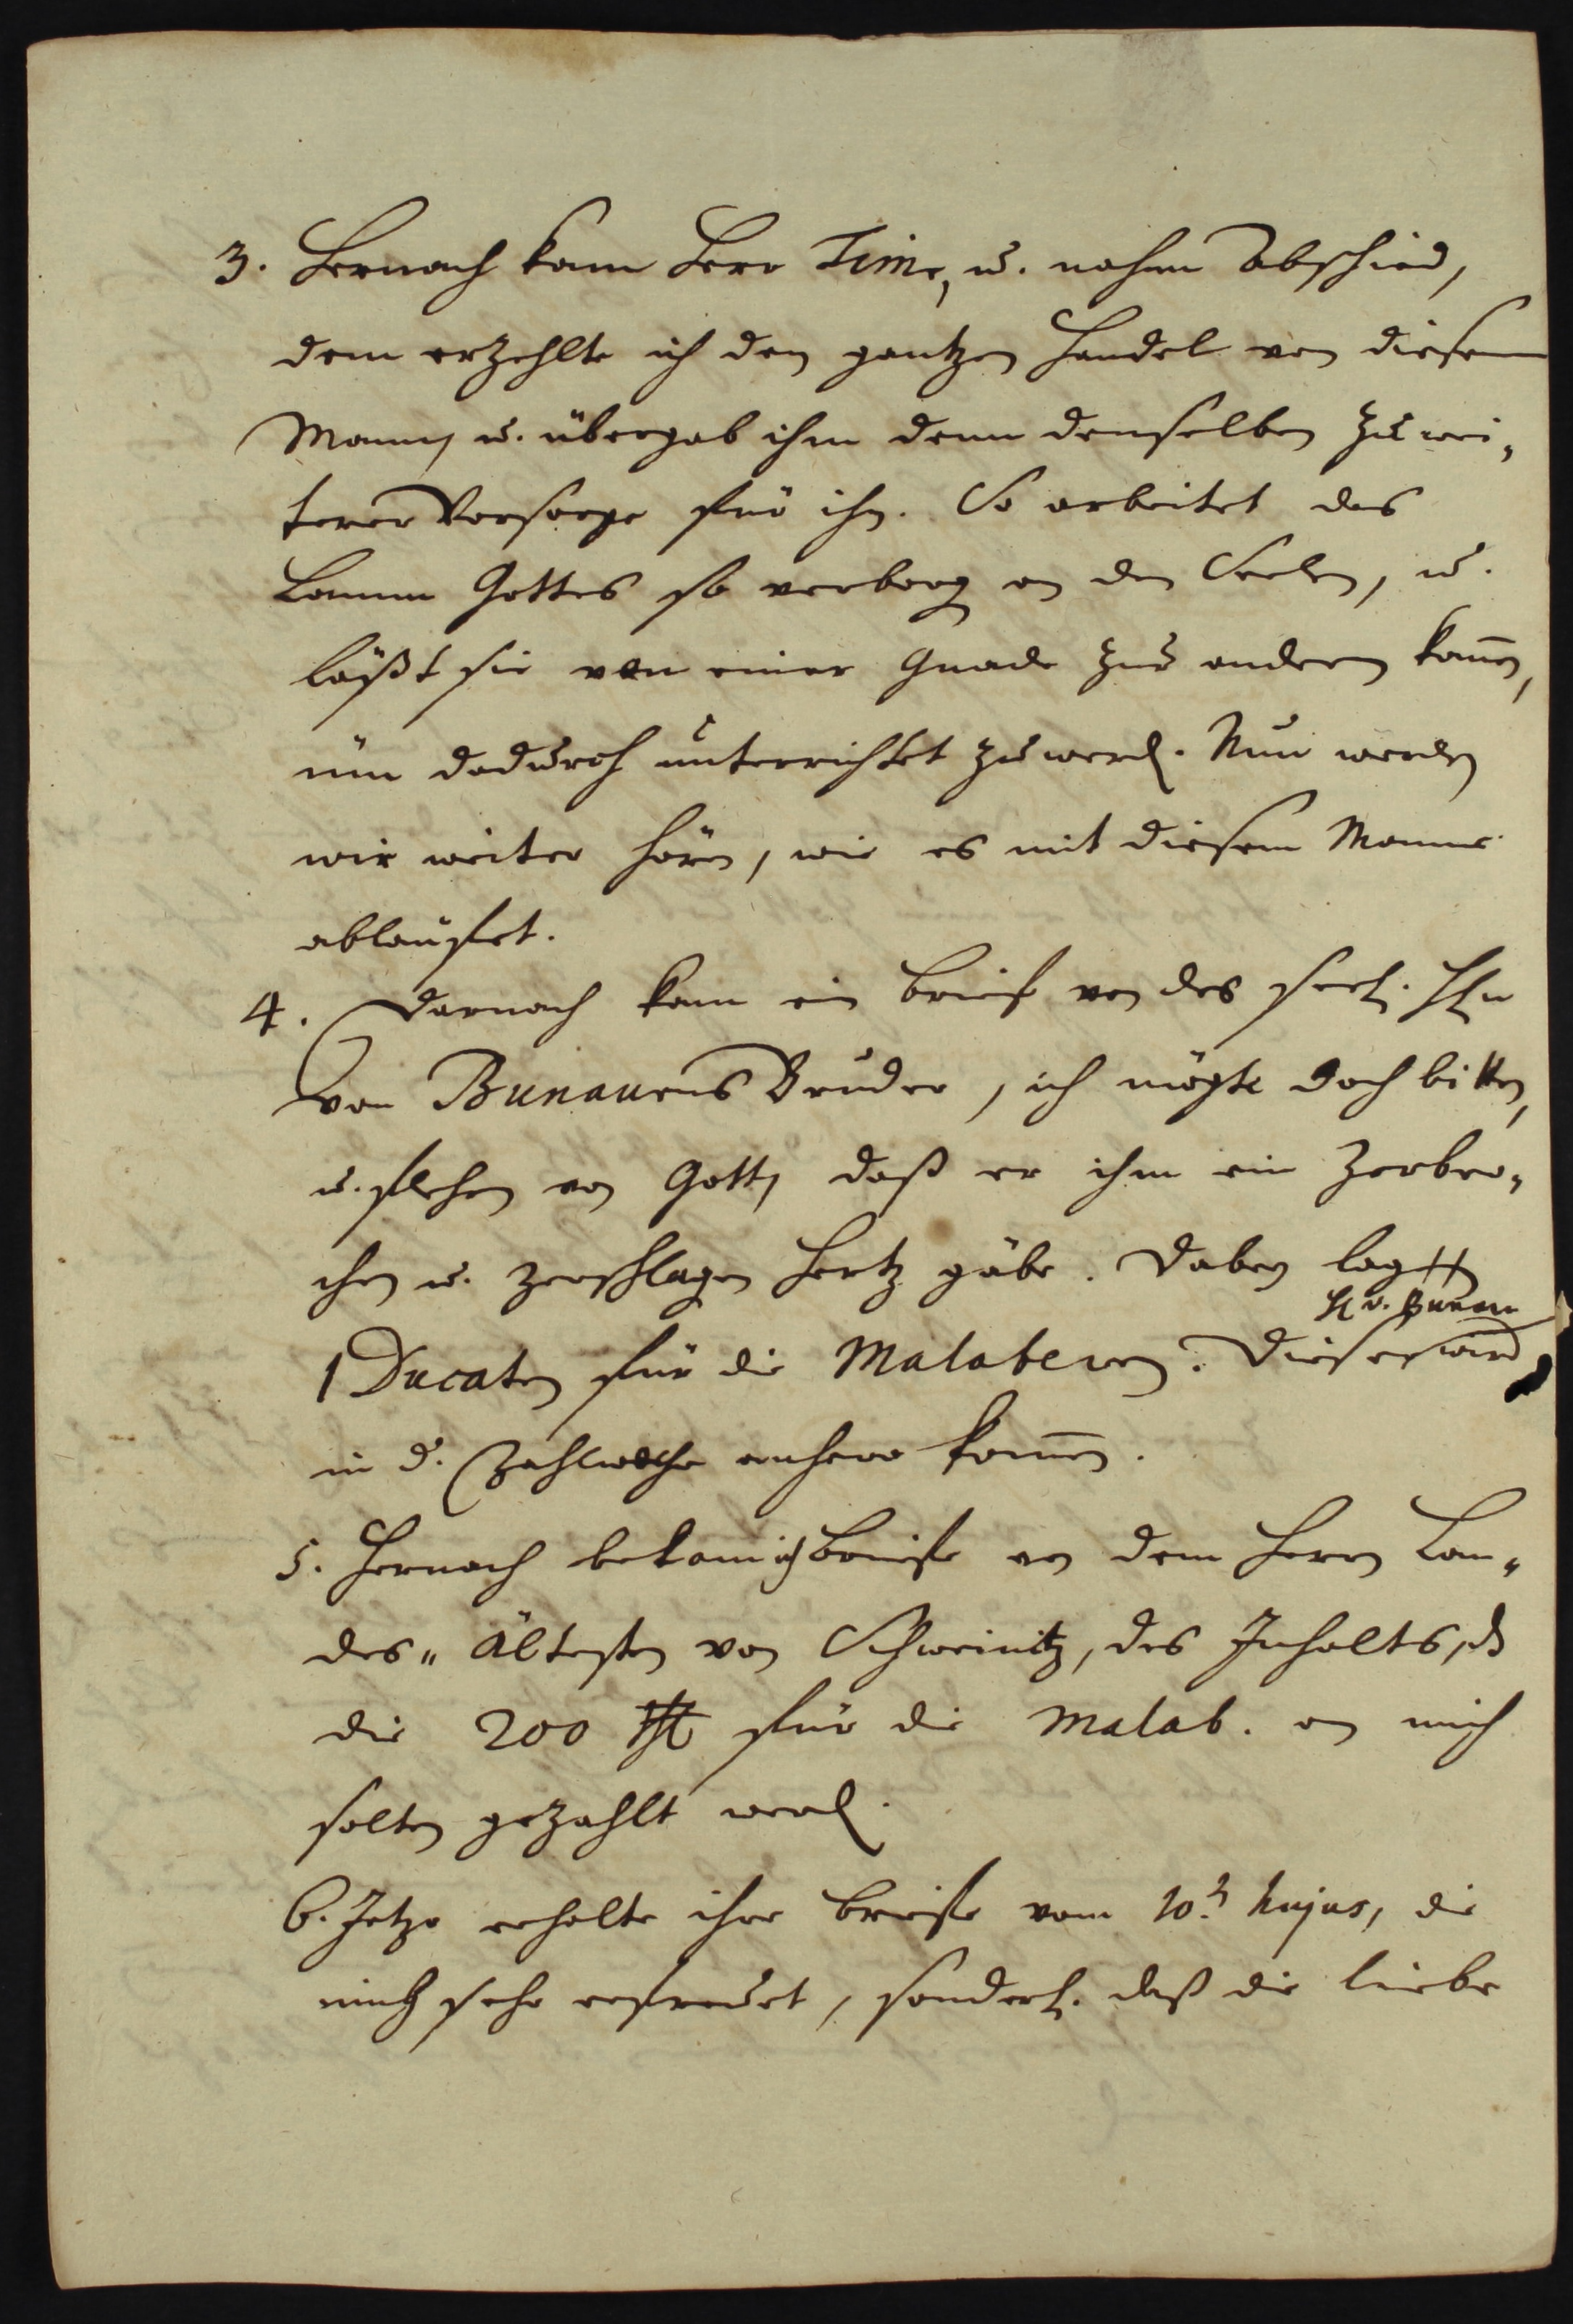 3. Hernach kam Herr Time, u. nahm Abschied,
dem erzehlte ich den gantzen Handel von diesem
Mann, u. übergab ihm denn denselben zu wei„
terer Vorsorge für ihn. So arbeitet das
Lamm Gottes so verborg an den Seelen, u.
läßt sie von einer Gnade zur andern kom̄en,
um dadurch unterrichtet zu werd. Nun werden
wir weiter hören, wie es mit diesem Manne
ablauffet.
4. Darnach kam ein Brief von des seel. Hn
von Bunauens Bruder, ich mögte doch bitten,
u. flehen von Gott, daß er ihm ein zerbro„
chen u. zerschlagen Hertz gäbe. Dabey lag
H v. Bunau
1 Ducaten für die Malabaren. Dieser wird
in d. Zahl welche anhero kom̄en.
5. Hernach bekam ich Briefe von dem Herrn Lan„
des„ Ältesten von Schweinitz, des Inhalts, dß
die 200 rthl für die Malab. an mich
solten gezahlt werd.
6. Jetzo erhalte ihre Briefe vom 10t hujus, die
mich sehr erfreuet, sonderl. daß die liebe